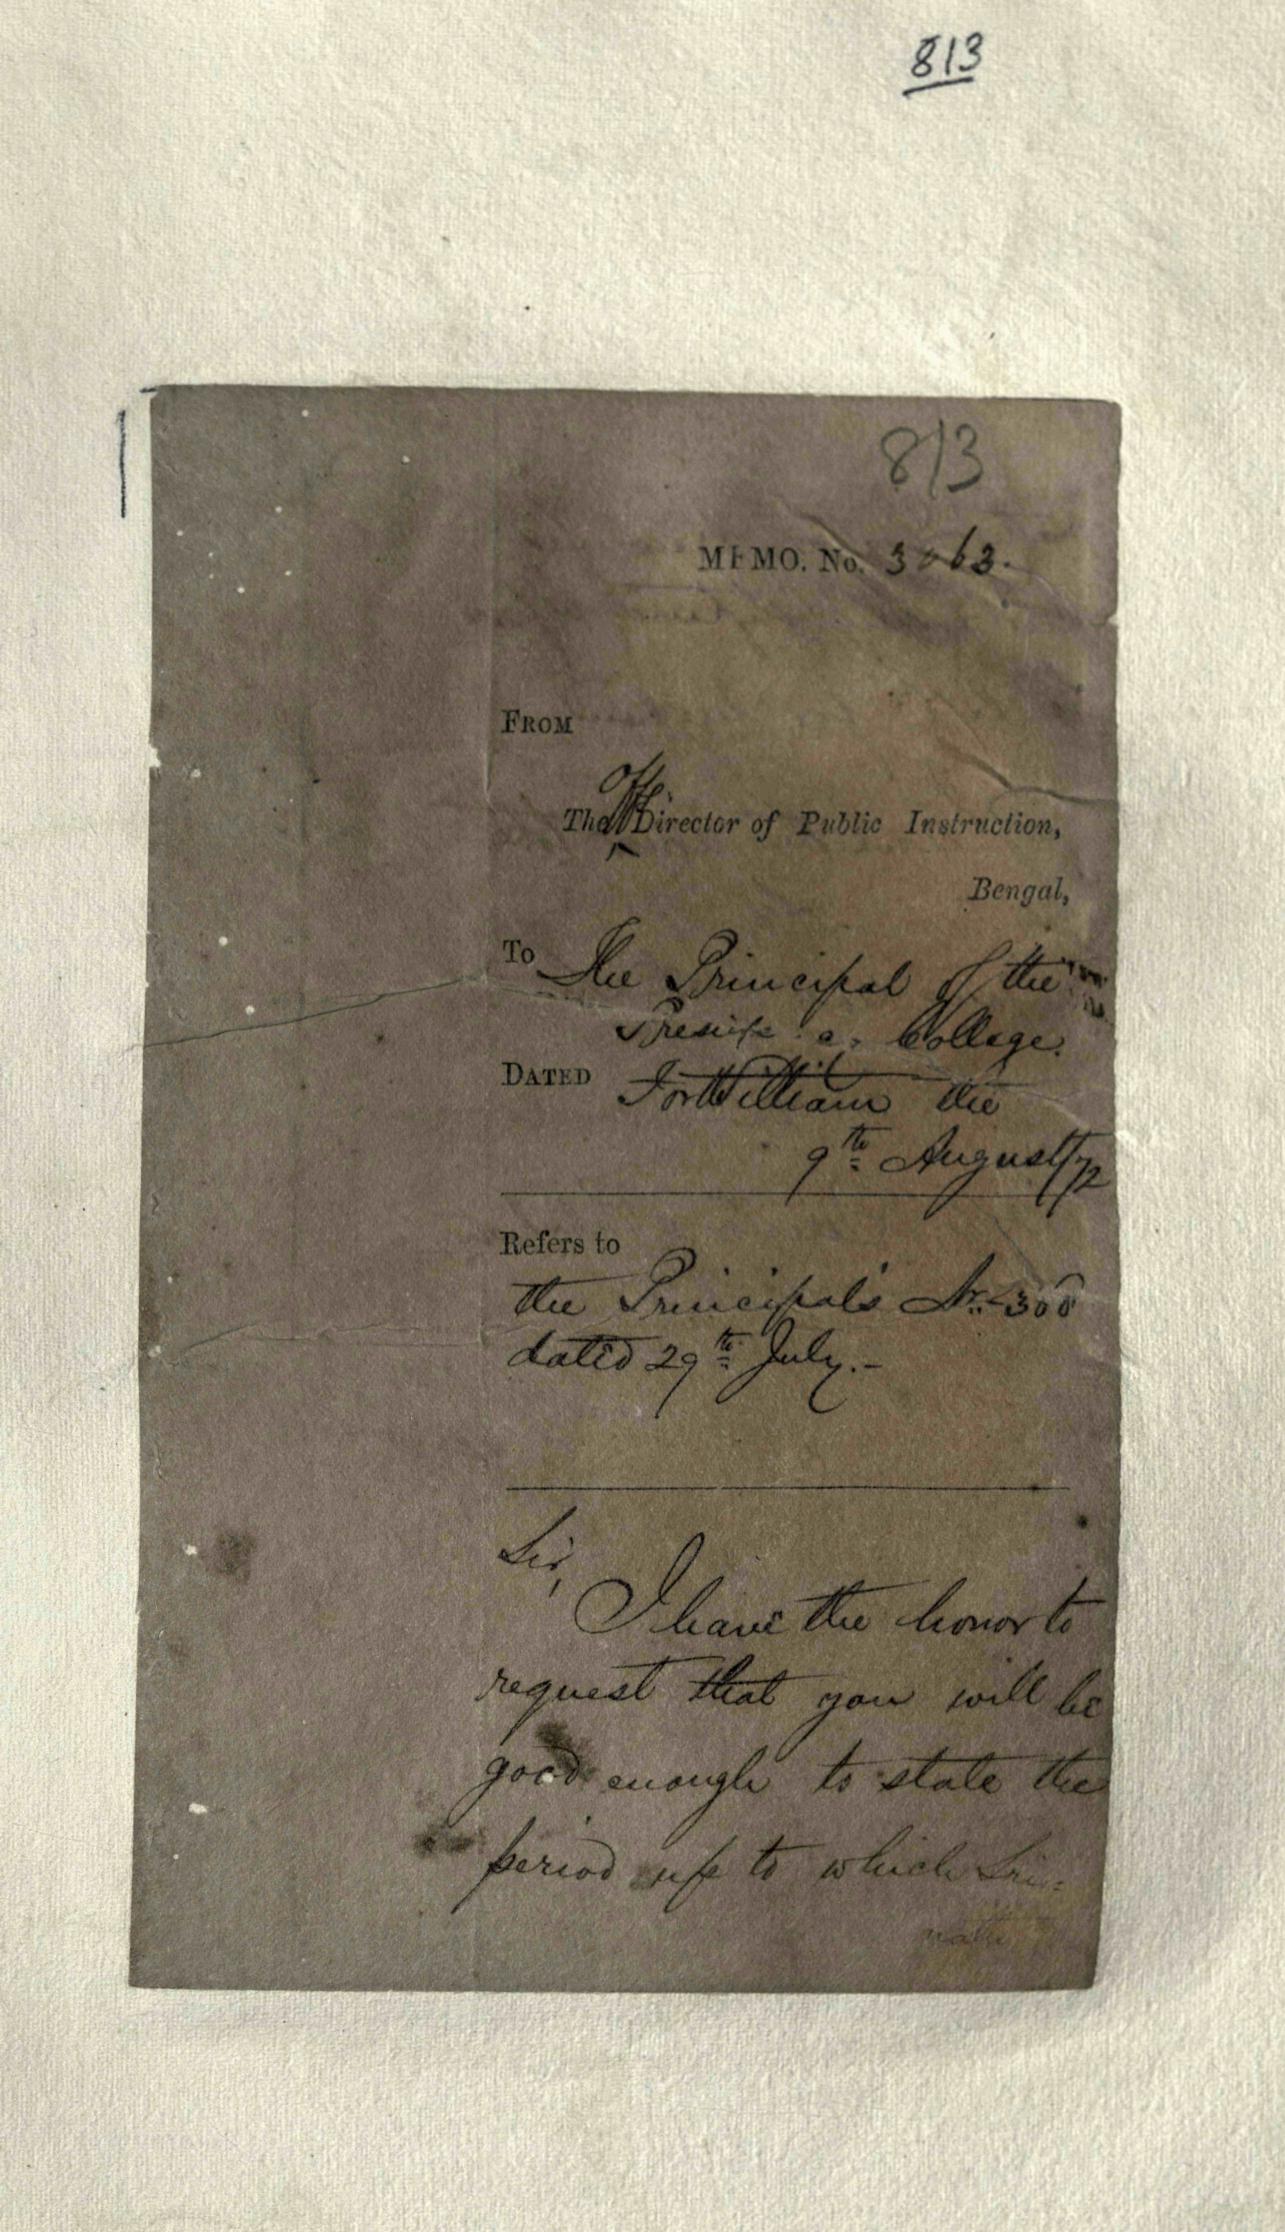 813
813
MEMO. No. 3063.
FROM
The Offg Director of Public Instruction,
Bengal,
To The Principal of the
College.
DATED Fort William the
9th August /72
Refers to
the Principal's No. 308
dated 29th July.-
Sir,
I have the honor to
request that you will be
good enough to state the
period up to which Sri-
nath